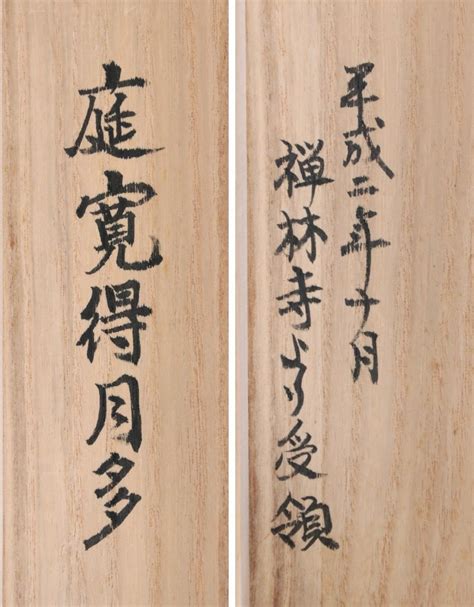 庭寛得月多
平成二年十月
禅林寺より受領